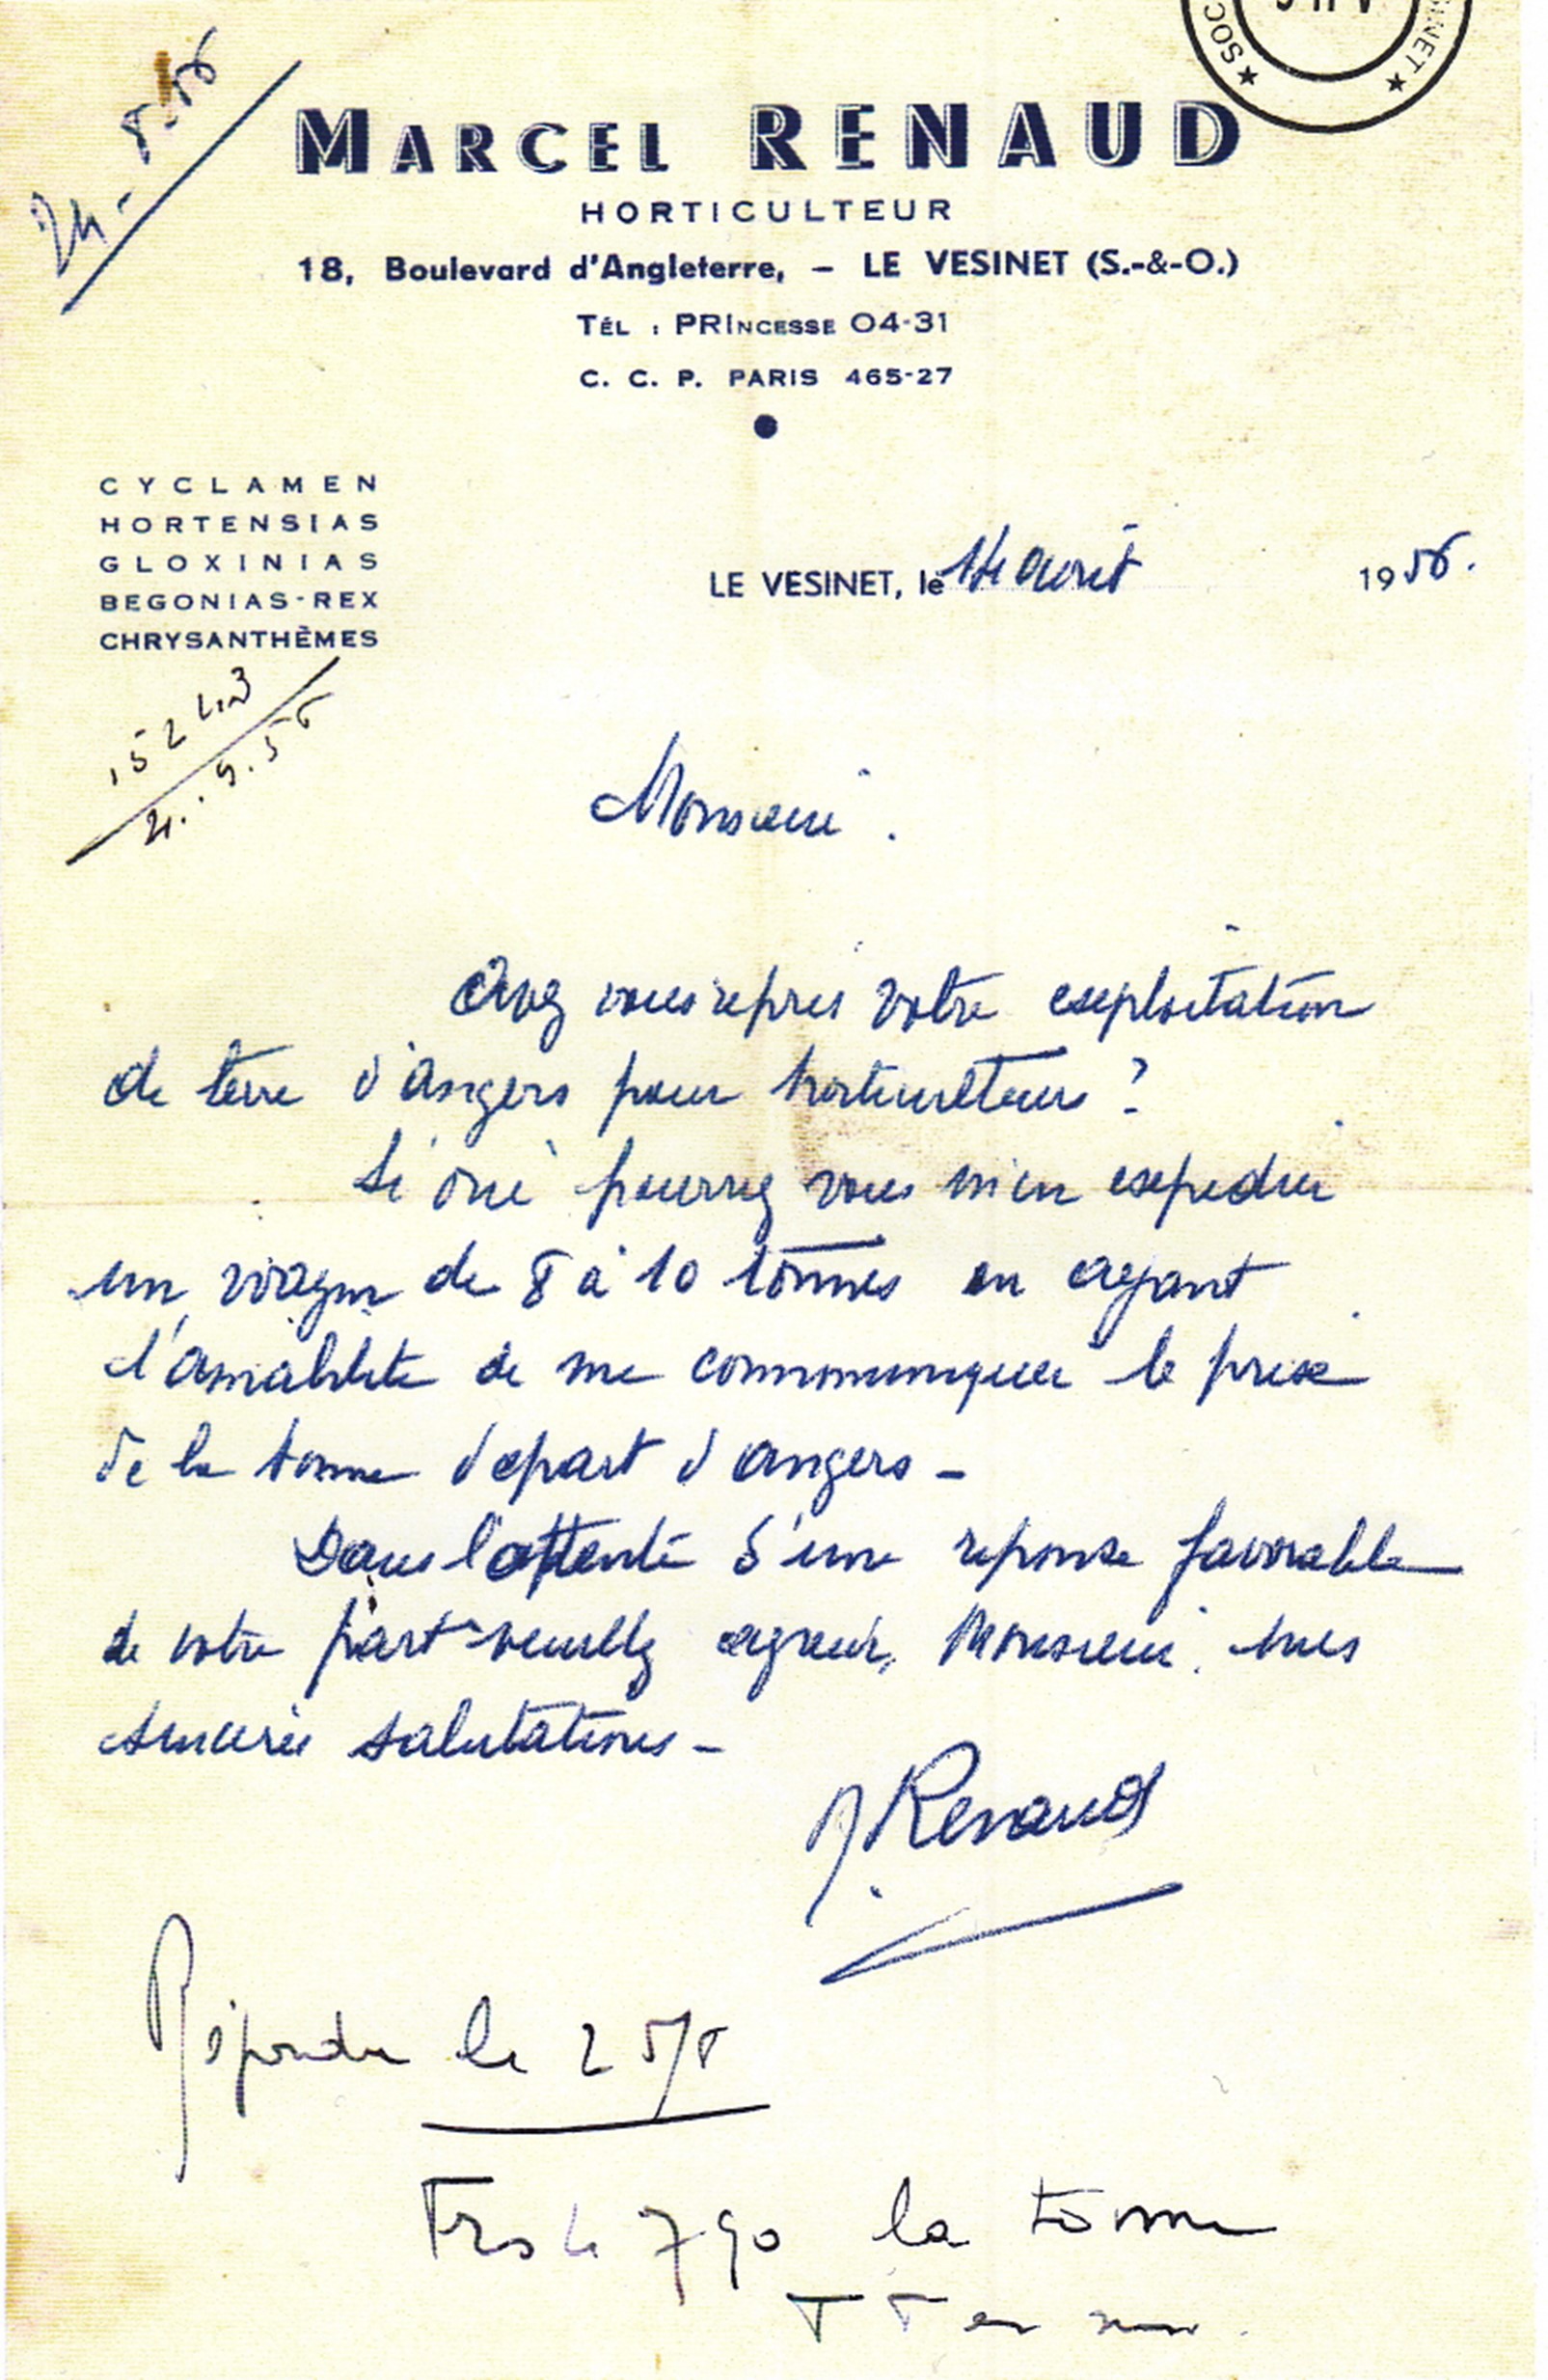 SOC
INET
24-8-56
MARCEL RENAUD
HORTICULTEUR
18, Boulevard d'Angleterre, – LE VESINET (S.-&-O.)
TÉL : PRINCESSE 04-31
C. C. P. PARIS 465-27
CYCLAMEN
HORTENSIAS
GLOXINIAS
BEGONIAS-REX
CHRYSANTHÈMES
LE VESINET, le 14 août 1956.
Monsieur.
Avez vous repris votre exploitation
de terre d'angers pour horticulteurs ?
Si oui pourrez vous m'en expedier
un wagon de 8 à 10 tonnes en ayant
l'amabilite de me communiquer le prix
de la tonne depart d'angers –
Dans l'attente d'une reponse favorable
de votre part veuillez agreer, Monsieur. mes
sincères salutations –
Renaud
Répondu le 25/8
790 la tonne